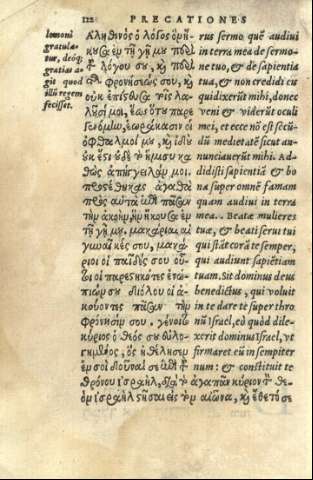 122 PRECATIONES
lomoni
gratula-
tur, deóq;
gratias a-
git quòd
illũ regem
fecisset.
Ἀληθινὸς ὁ λόγος ὃν ἤ-
κουσα ἐν τῇ γῇ μου περὶ
τοῦ λόγου σου, καὶ περὶ
τῆς φρονήσεώς σου, καὶ
οὐκ ἐπίστευσα τοῖς λα-
λοῦσί μοι, ἕως ὅτου παρε-
γενόμην, ἑωράκασιν οἱ
ὀφθαλμοί μου, καὶ ἰδοὺ
οὐκ ἔστι τὸ ἥμισυ κα-
θὼς ἀπήγγειλάν μοι.
προσέθηκας ἀγαθὰ
πρὸς αὐτὰ ἐπὶ πᾶσαν
τὴν ἀκοὴν, ἣν ἤκουσα ἐν
τῇ γῇ μου, μακάριαι αἱ
γυναῖκές σου, μακά-
ριοι οἱ παῖδές σου οὗ-
τοι οἱ παρεστηκότες ἐνώ-
πιόν σου διόλου οἱ ἀ-
κούοντες πᾶσαν τὴν
φρόνησίν σου. γένοιτο
κύριος ὁ θεός σου εὐλο-
γημένος, ὃς ἠθέλησεν
ἐν σοὶ δοῦναί σε ἐπὶ τοῦ
θρόνου ἰσραὴλ, διὰ τὸ ἀγαπᾶν κύριον τὸν θε-
ὸν ἰσραὴλ στῆσαι εἰς τὸν αἰῶνα, καὶ ἔθετό σε
rus sermo quẽ audiui
in terra mea de sermo-
ne tuo, & de sapientia
tua, & non credidi cũ
qui dixerũt mihi, donec
veni & viderũt oculi
mei, et ecce nõ est secũ-
dũ medietatẽ sicut an-
nunciauerũt mihi. Ad-
didisti sapientiã & bo
na super omnẽ famam
quam audiui in terra
mea. Beatæ mulieres
tuæ, & beati serui tui
qui stãt corã te semper,
qui audiunt sapiẽtiam
tuam. Sit dominus deus
benedictus, qui voluit
in te dare te super thro
nũ Israel, eò quòd dile-
xerit dominus Israel, vt
firmaret eũ in sempiter
num: & constituit te